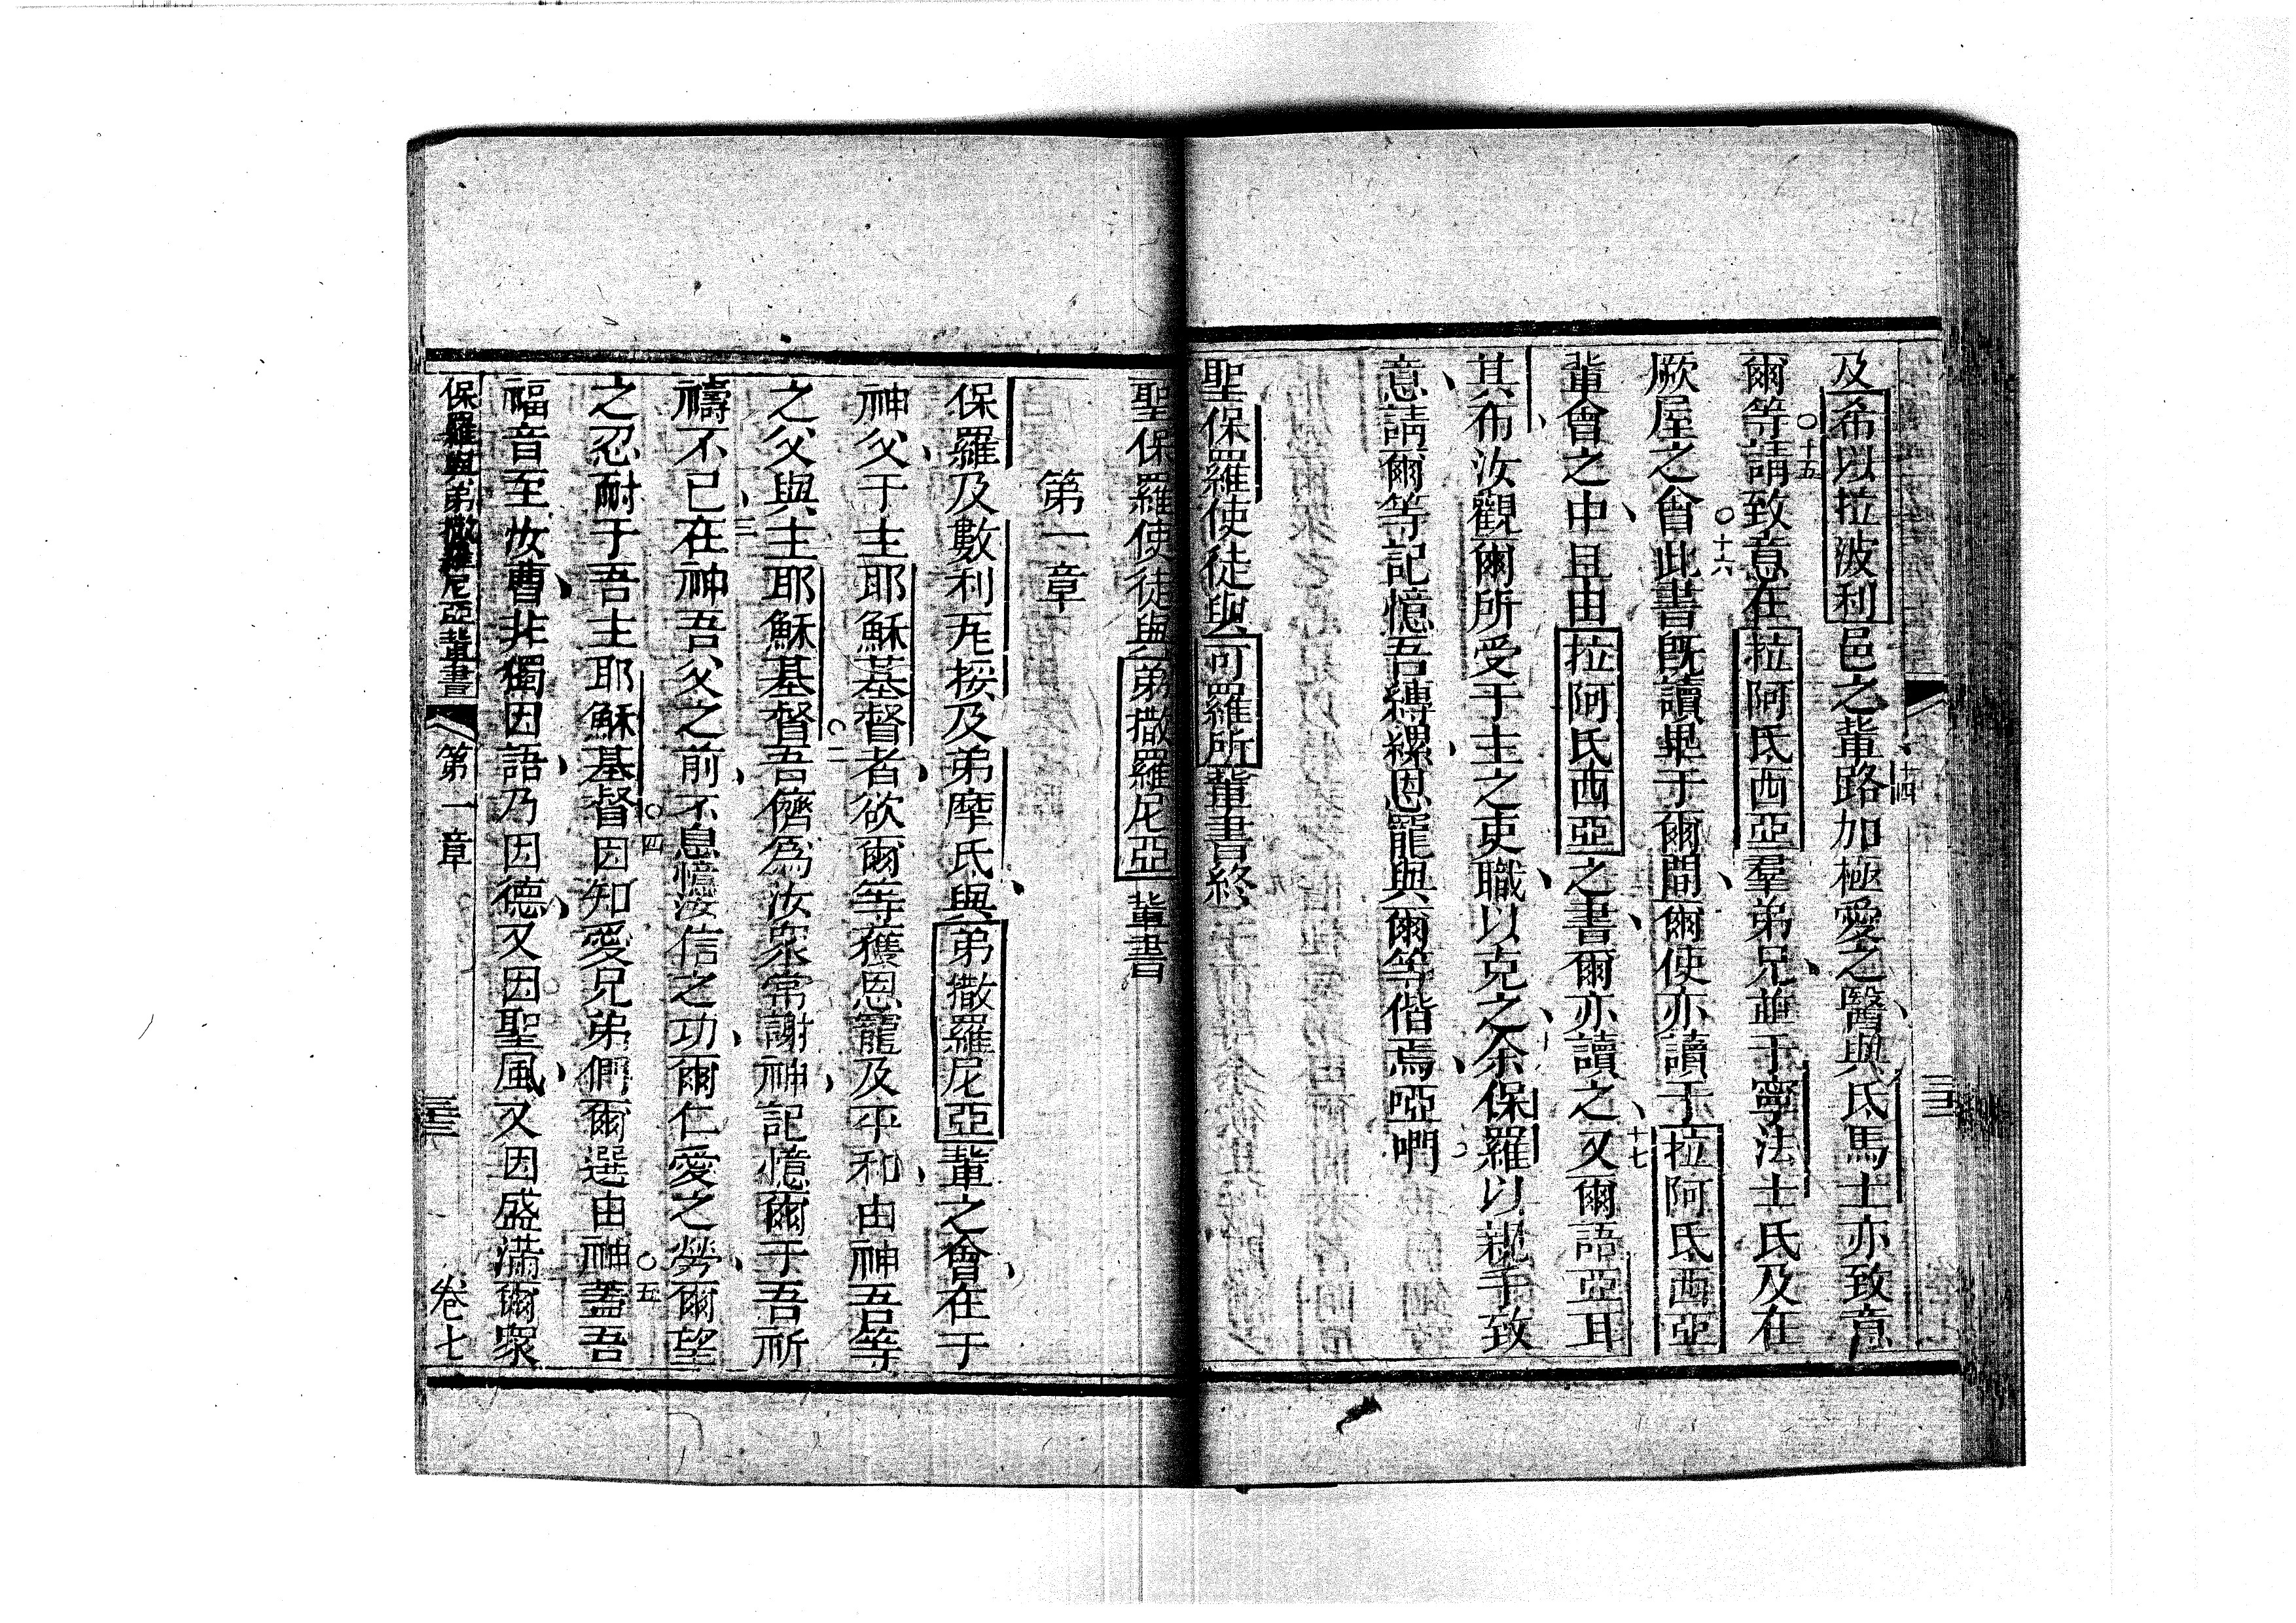 及希以拉波利邑之輩、十四路加極愛之醫、與氐馬士亦致意
爾等、○十五請致意在拉阿氐西亞羣弟兄、並于寧法士氏及在
厥屋之會、○十六此書旣讀畢于爾間、爾使亦讀于拉阿氐西亞
輩會之中、且由拉阿氐西亞之書、爾亦讀之、十七又爾語亞耳
其布、汝觀爾所受于主之吏職、以克之、余保羅以親手致
意、請爾等記憶吾縛縲、恩寵與爾等偕焉、啞㗄。
聖保羅使徒與可羅所輩書終
聖保羅使徒與弟撒羅尼亞輩書
第一章
保羅及數利瓦挼及弟摩氏、與弟撒羅尼亞輩之會、在于
神父、于主耶穌基督者、欲爾等獲恩寵及平和、由神吾等
之父與主耶穌基督、○二吾儕為汝眾常謝神、記憶爾于吾祈
禱不已、三在神吾父之前、不息憶汝信之功、爾仁愛之勞、爾望
之忍耐于吾主耶穌基督、○四因知愛兄弟們、爾選由神、○五蓋吾
福音至汝曹、非獨因語、乃因德、又因聖風、又因盛滿、爾眾
保羅與弟撒羅尼亞輩書 第一章 三十三 卷七